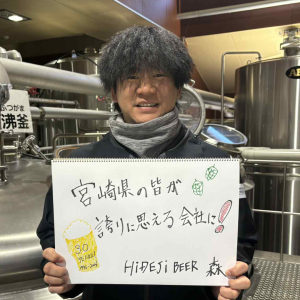 ぶつがま
沸釜
宮崎県の皆が
誇りに思える会社に!
30
HiDEJi BEER 森